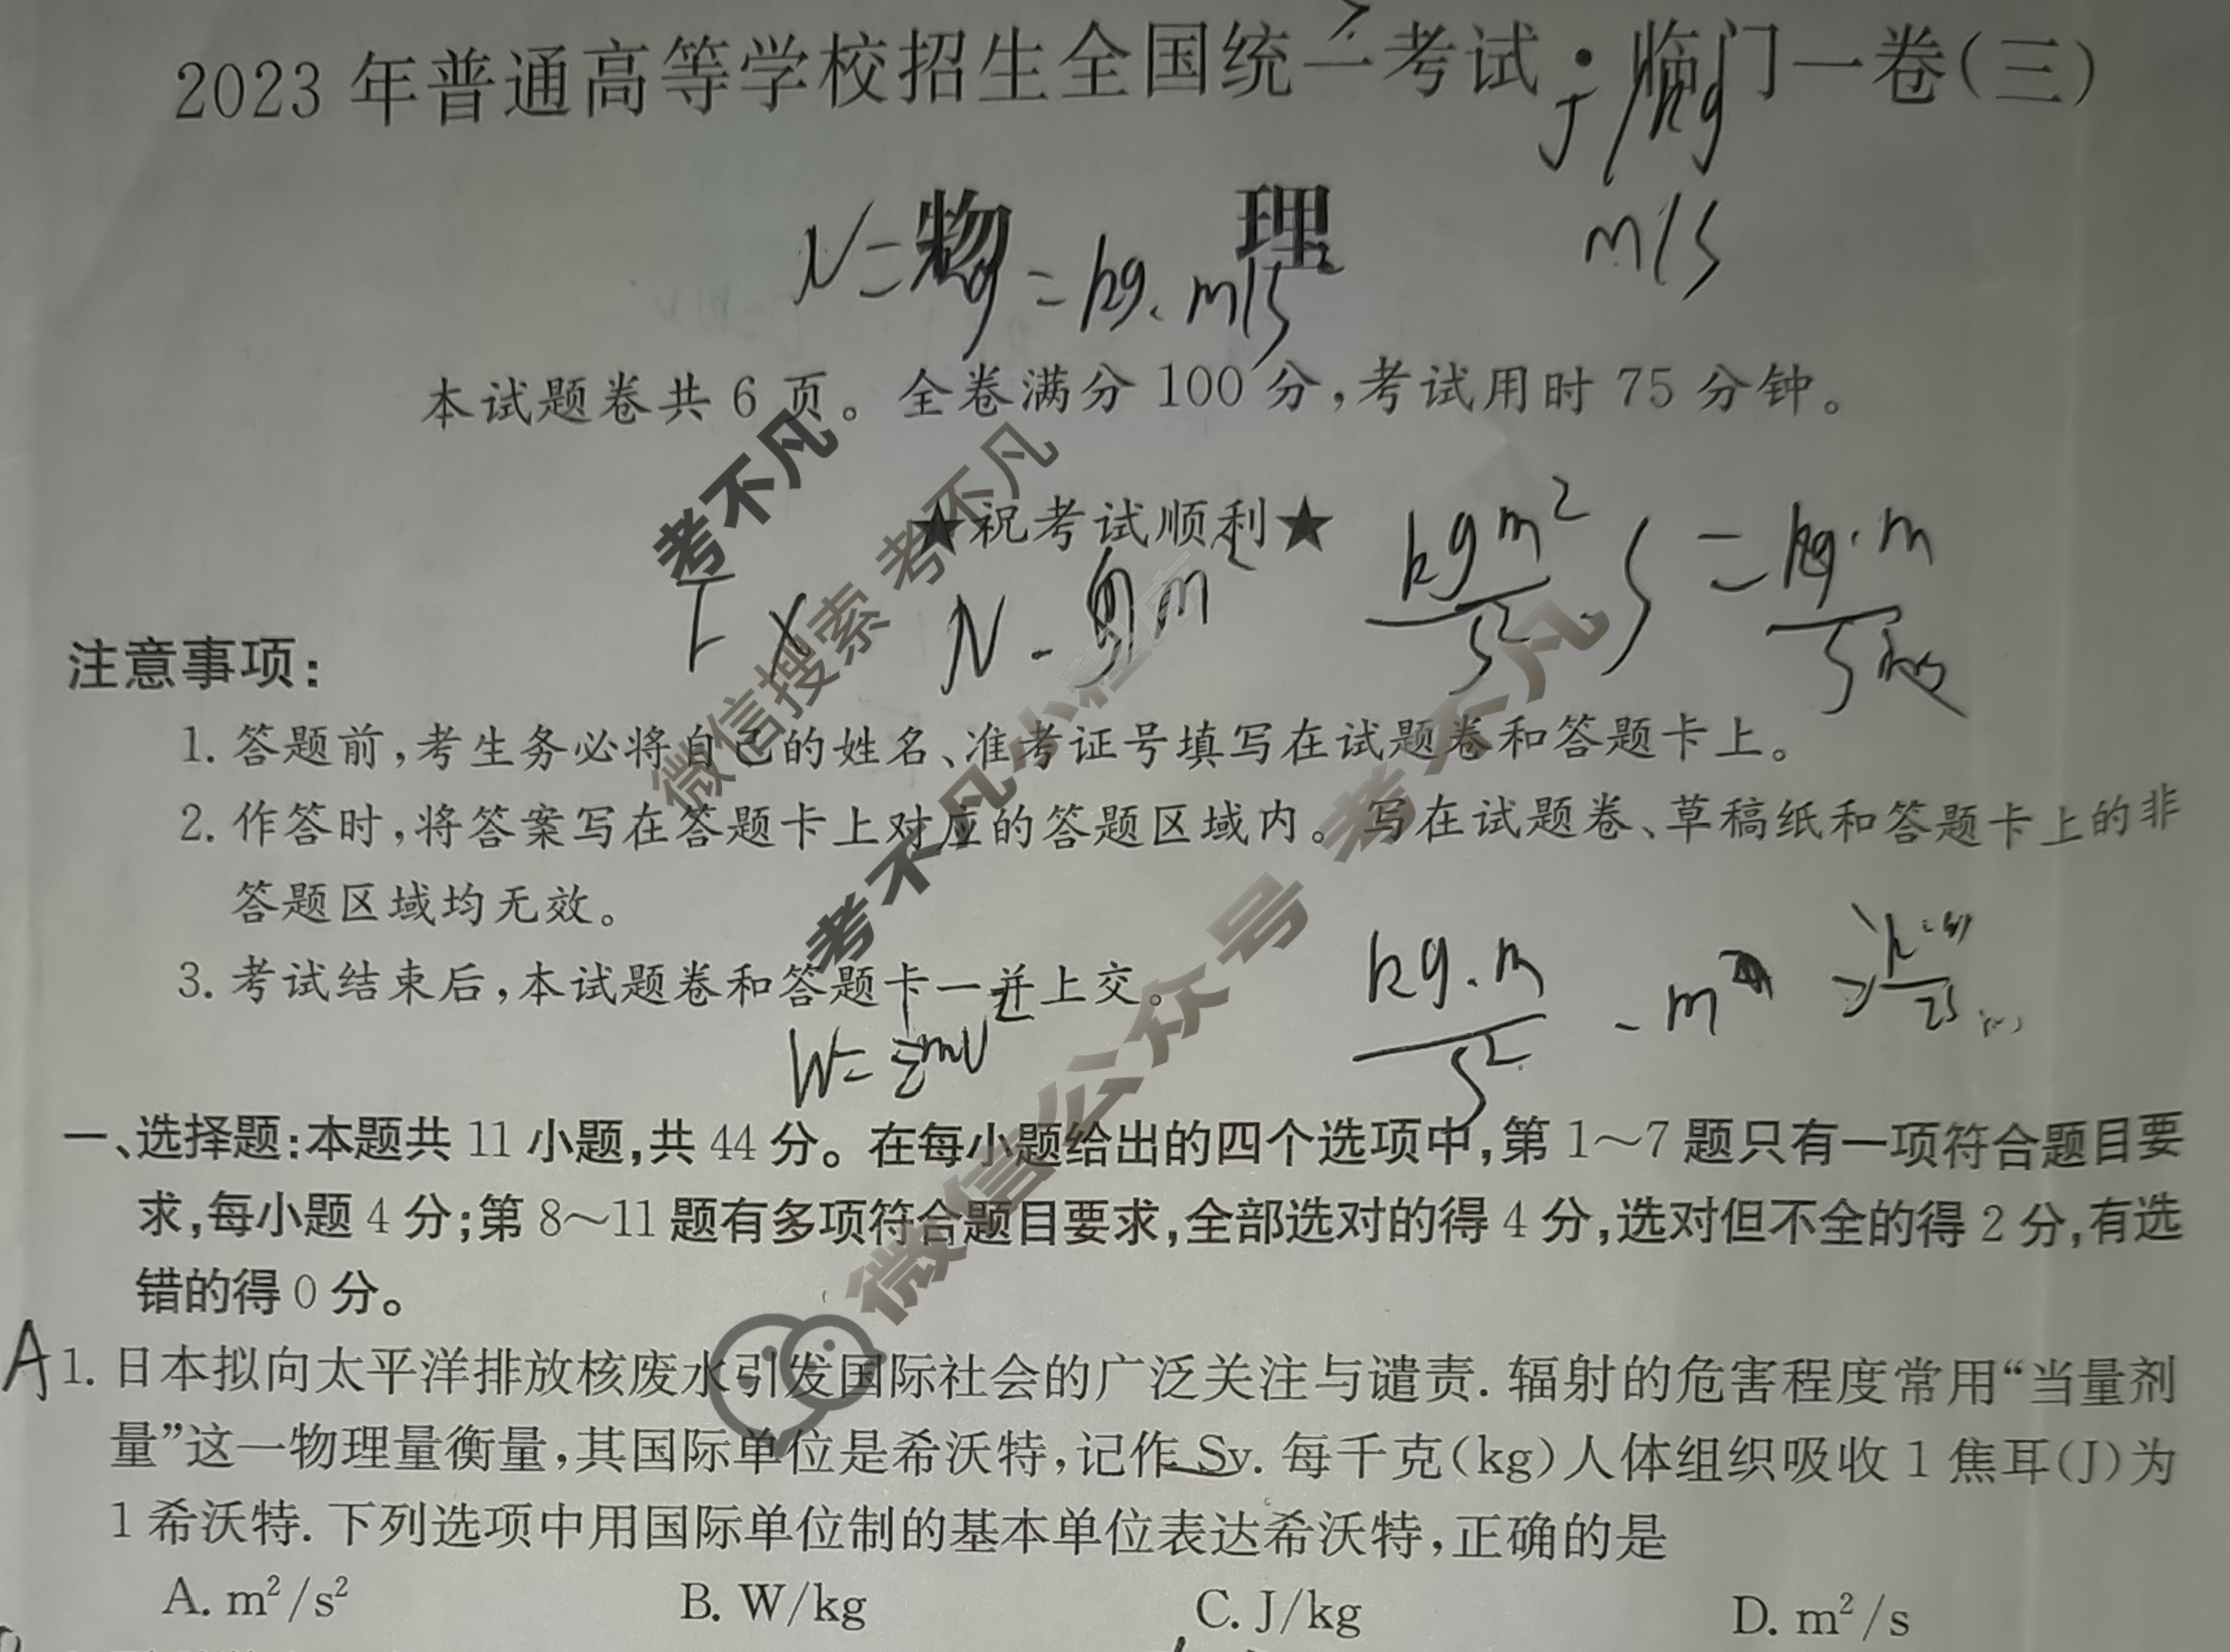 2023年普通高等学校招生全国统一考试·临门一卷(三)
J/kg
物 理
m/s
N=
=kg.m/s²
本试题卷共6页。全卷满分100分,考试用时75分钟。
考不凡
微信搜索 考不凡
★祝考试顺利★
kgm²
s²
.s
=kg.m
注意事项:
1.答题前,考生务必将自己的姓名、准考证号填写在试题卷和答题卡上。
2.作答时,将答案写在答题卡上对应的答题区域内。写在试题卷、草稿纸和答题卡上的非
答题区域均无效。
3.考试结束后,本试题卷和答题卡一并上交。
考不凡小程序
微信公众号 考不凡
W=½mv²
kg.m
s²
一、选择题:本题共11小题,共44分。在每小题给出的四个选项中,第1～7题只有一项符合题目要
求,每小题4分;第8～11题有多项符合题目要求,全部选对的得4分,选对但不全的得2分,有选
错的得0分。
A
1.日本拟向太平洋排放核废水引发国际社会的广泛关注与谴责.辐射的危害程度常用“当量剂
量”这一物理量衡量,其国际单位是希沃特,记作Sv.每千克(kg)人体组织吸收1焦耳(J)为
1希沃特.下列选项中用国际单位制的基本单位表达希沃特,正确的是
A. m²/s² B. W/kg C. J/kg D. m²/s